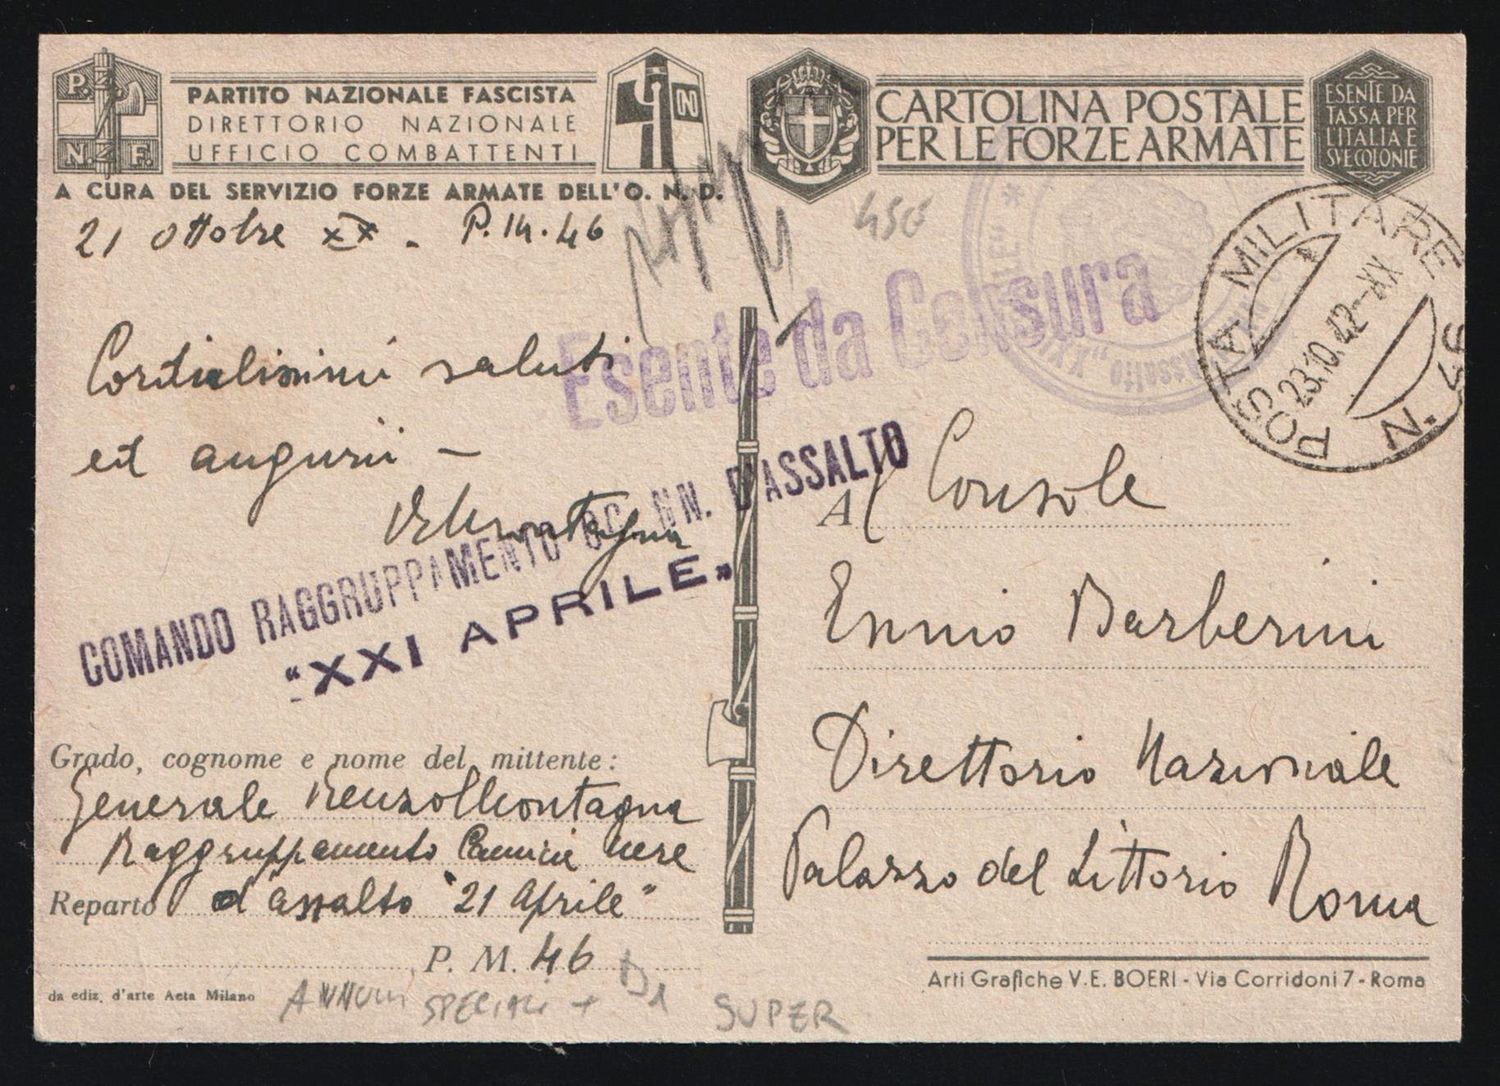 P.
N. F.
PARTITO NAZIONALE FASCISTA
DIRETTORIO NAZIONALE
UFFICIO COMBATTENTI
A CURA DEL SERVIZIO FORZE ARMATE DELL'O. N. D.
CARTOLINA POSTALE
PER LE FORZE ARMATE
ESENTE DA
TASSA PER
L'ITALIA E
SVE COLONIE
21 Ottobre XX. P.M. 46
456
Esente da Censura
POSTA MILITARE N. 97
23.10.42-XX
Cordialissimi saluti
ed augurii -
RMontagna
COMANDO RAGGRUPPAMENTO CC. NN. D'ASSALTO
"XXI APRILE"
Al Console
Ennio Barberini
Direttorio Nazionale
Palazzo del Littorio Roma
Grado, cognome e nome del mittente:
Generale Renzo Montagna
Raggruppamento Camicie nere
Reparto d'assalto "21 Aprile"
P. M. 46
da ediz. d'arte Aeta Milano
Arti Grafiche V. E. BOERI - Via Corridoni 7 - Roma
ANNULLI SPECIALI + D1 SUPER